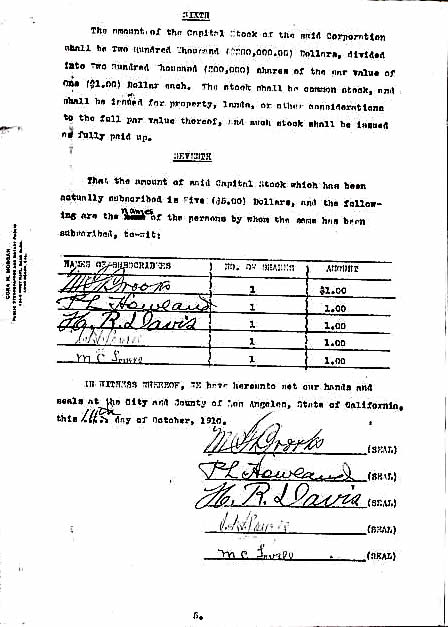 SIXTH
The amount of the Capital Stock of the said Corporation
shall be Two Hundred Thousand ($200,000.00) Dollars, divided
into Two Hundred Thousand (200,000) shares of the par value of
One ($1.00) Dollar each. The stock shall be common stock, and
shall be issued for property, lands, or other considerations
to the full par value thereof, and such stock shall be issued
as fully paid up.
SEVENTH
That the amount of said Capital Stock which has been
actually subscribed is Five ($5.00) Dollars, and the follow-
ing are the names of the persons by whom the same has been
subscribed, to-wit:
NAMES OF SUBSCRIBERS NO. OF SHARES AMOUNT
M S Brooks 1 $1.00
P L Howland 1 1.00
H. R. Davis 1 1.00
1 1.00
M C Lowre 1 1.00
IN WITNESS WHEREOF, WE have hereunto set our hands and
seals at the City and County of Los Angeles, State of California,
this 11th day of October, 1910.
M S Brooks (SEAL)
P L Howland (SEAL)
H. R. Davis (SEAL)
(SEAL)
M C (SEAL)
5.
CORA H. MORGAN